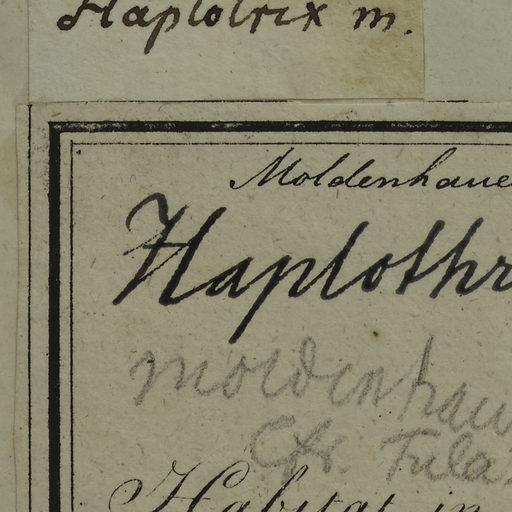 Haplotrix m.
Moldenhaue
Haplothr
moldenhau
Cfr. Tula
Habitat in